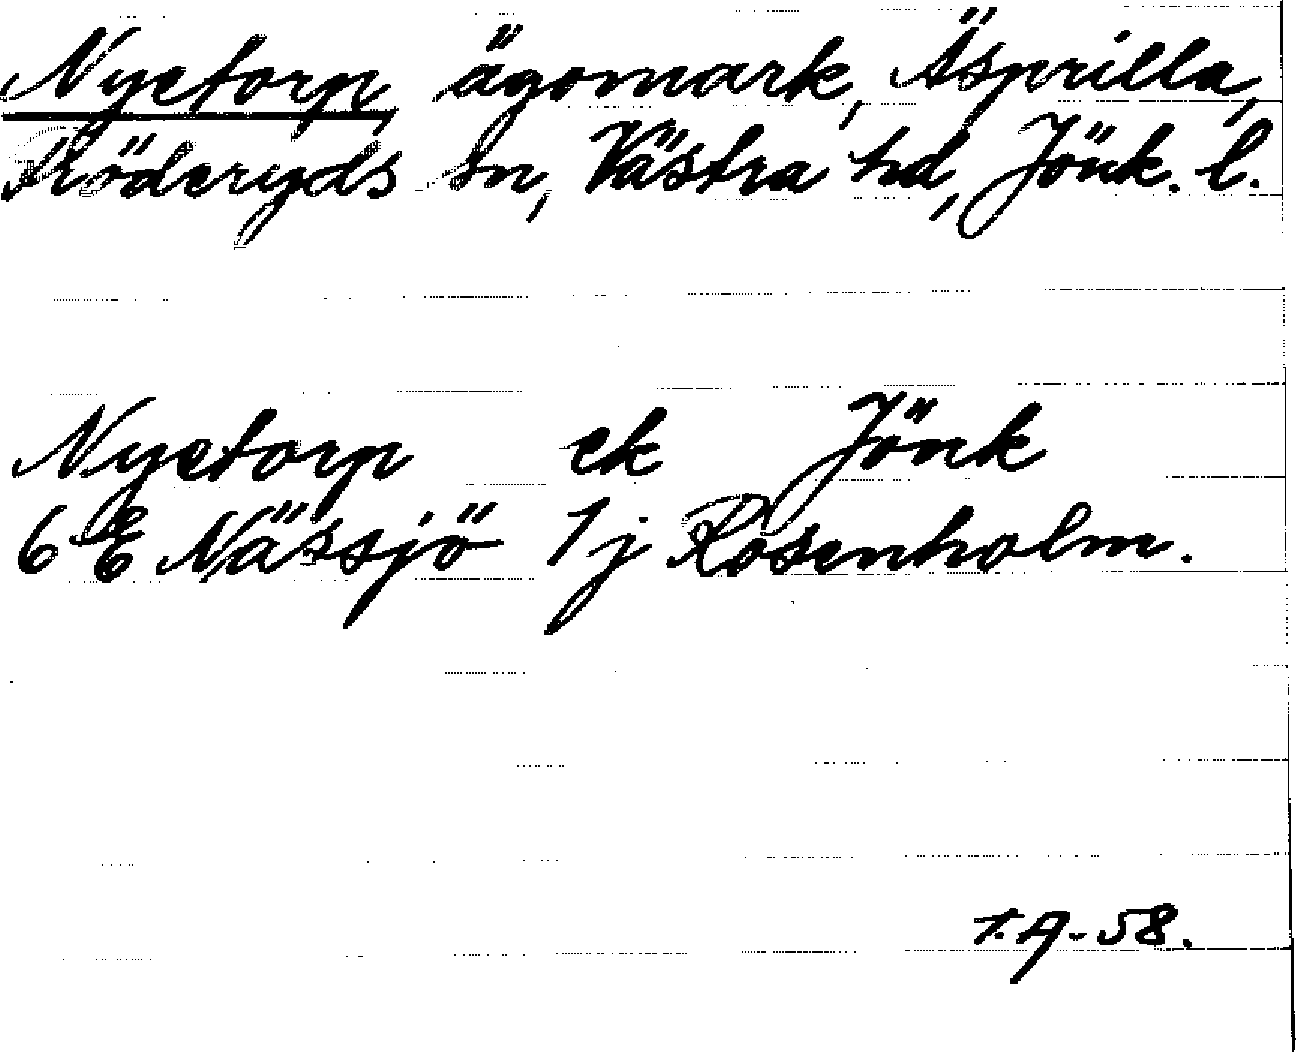 Nyetorp, ägomark, Äsprilla,
Flöderyds sn, Västra hd, Jönk. l.
Nyetorp ek Jönk
6 E Nässjö 1j Rosenholm.
T.A-58.